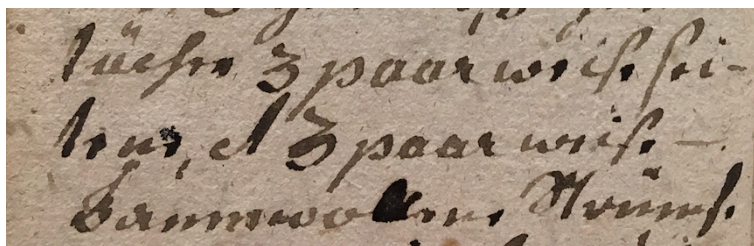 tücher 3 paar weise sei-
tene, et 3 paar weise
baumwollene Strümpf.